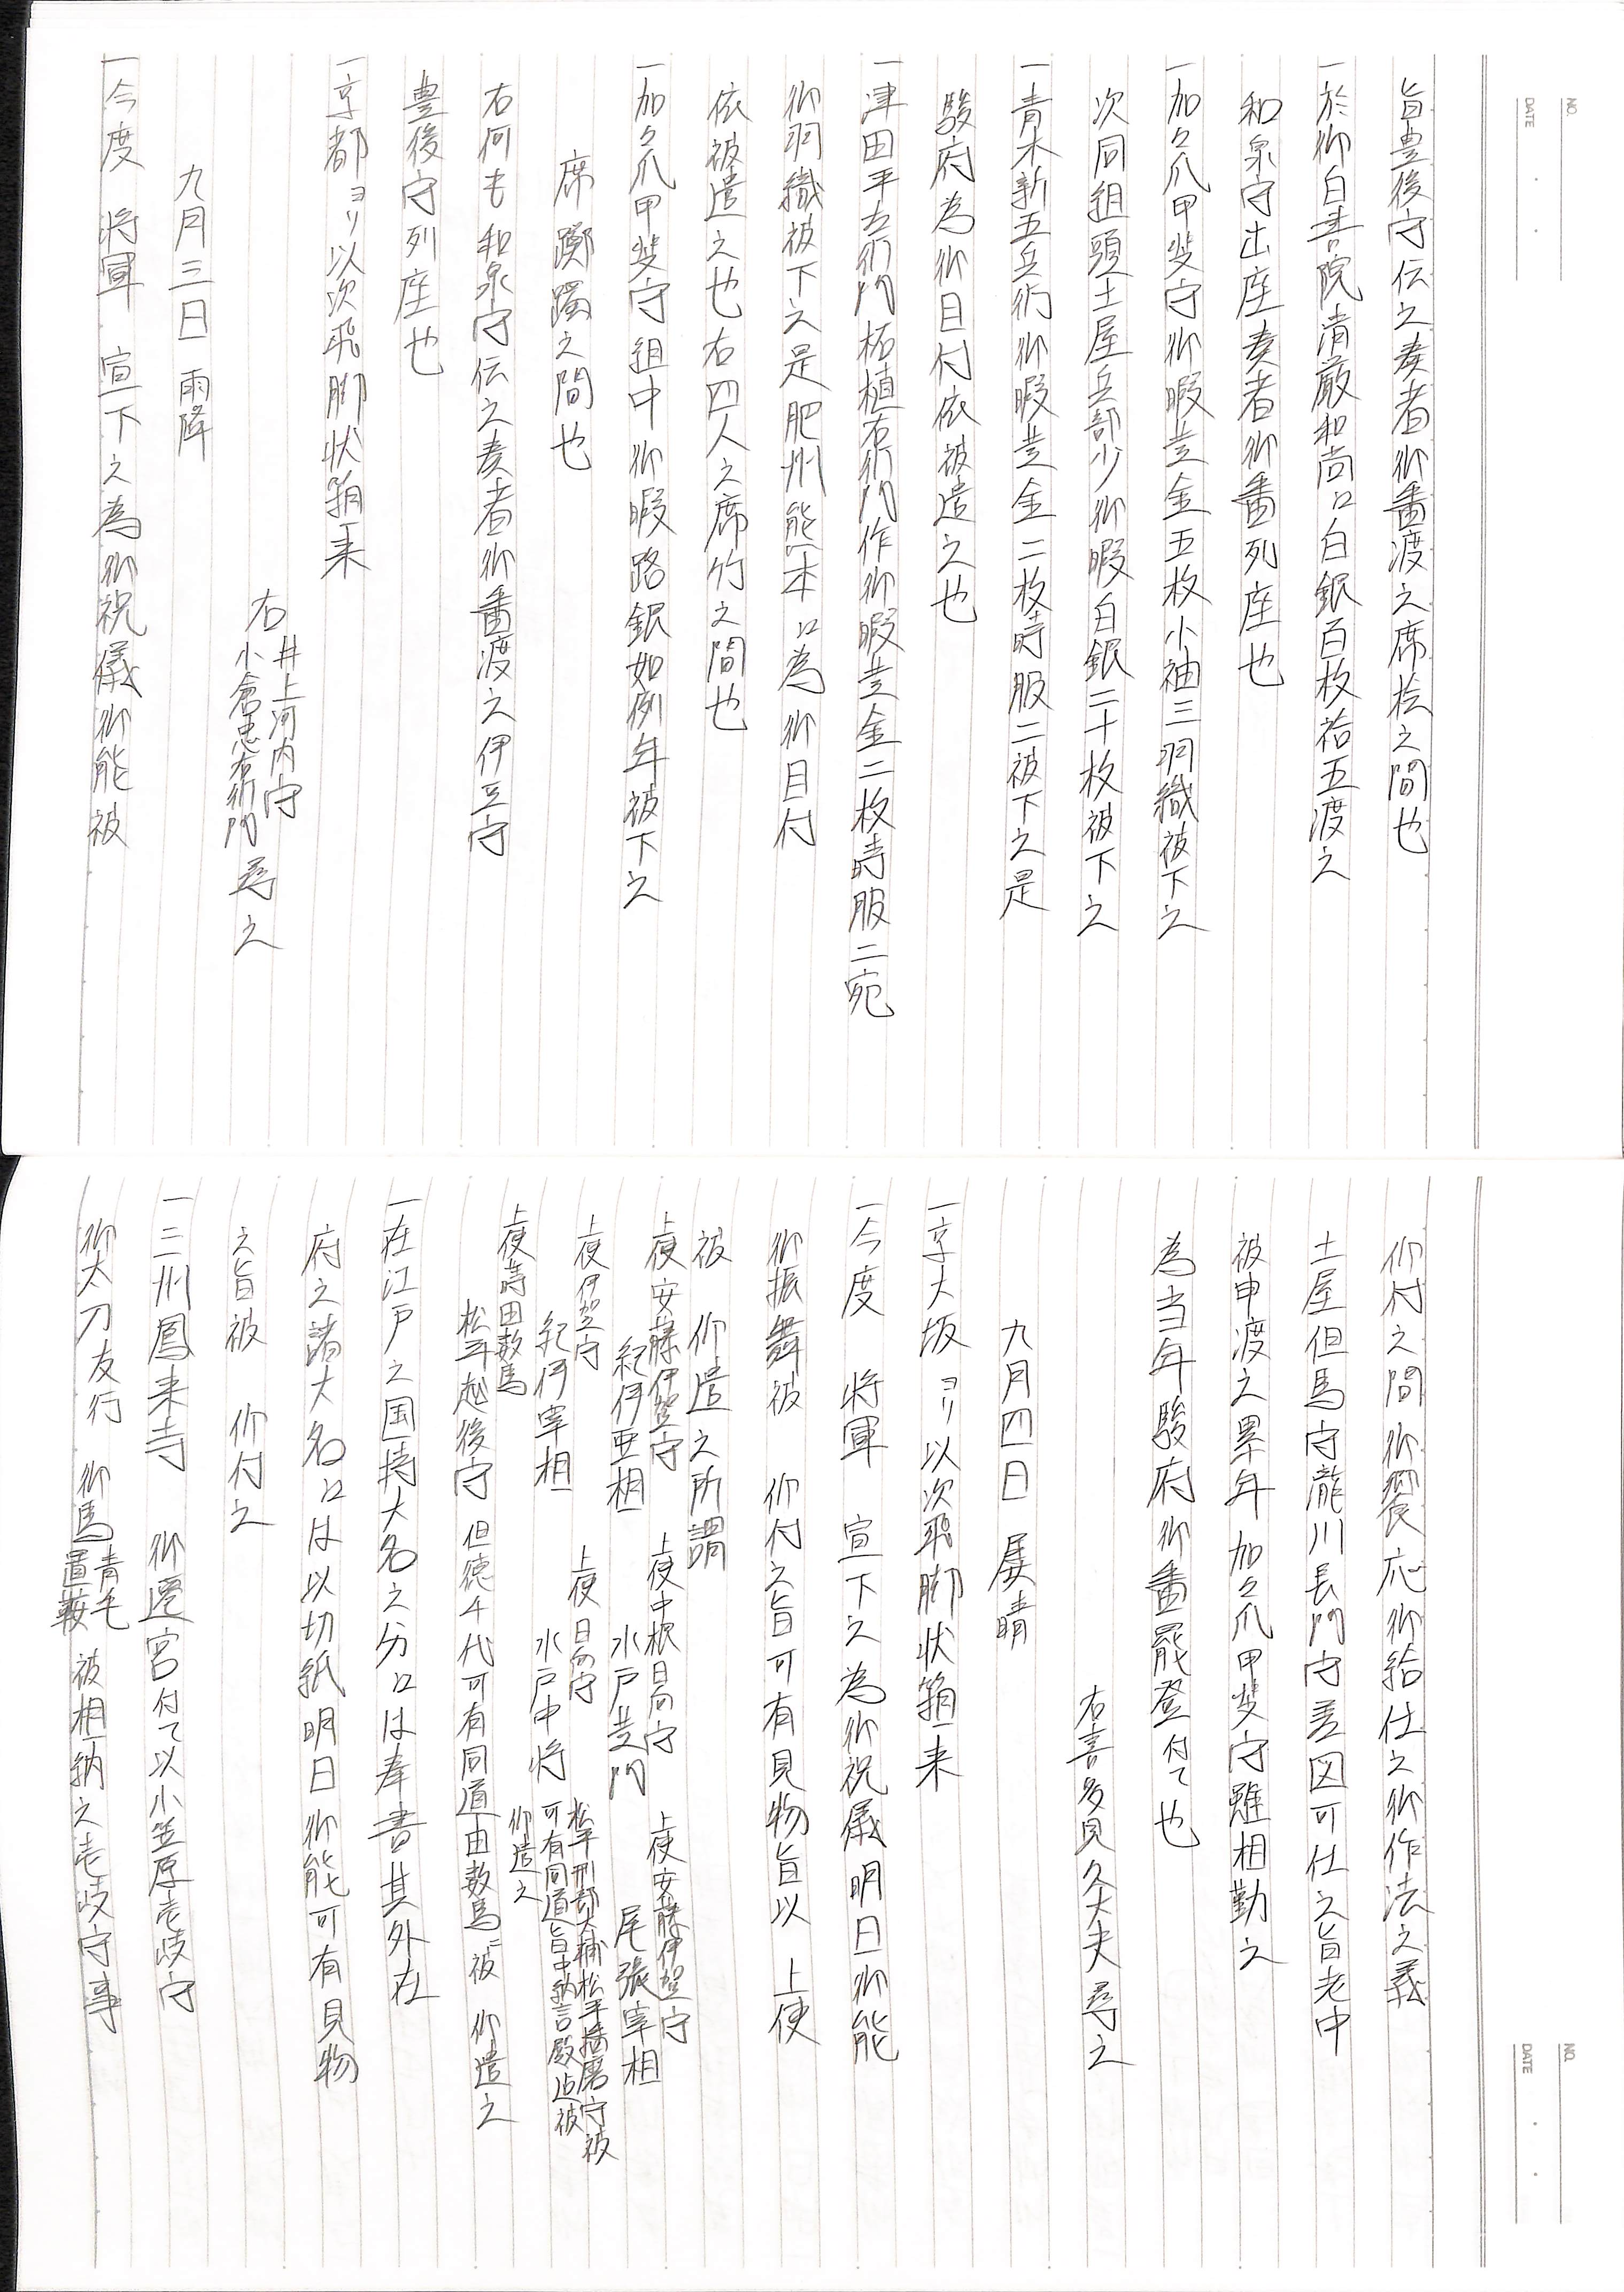 旨豊後守伝之奏者御番渡之席桧之間也
一於御白書院清厳和尚江白銀百枚袷五渡之
和泉守出座奏者御番列座也
一加々爪甲斐守御暇黄金五枚小袖三羽織被下之
次同組頭土屋兵部少御暇白銀二十枚被下之
一青木新五兵衛御暇黄金二枚時服二被下之是
駿府為御目付依被遣之也
一津田平左衛門柘植右衛門作御暇黄金二枚時服二宛
御羽織被下之是肥州熊本江為御目付
依被遣之也右四人之席竹之間也
一加々爪甲斐守組中御暇路銀如例年被下之
席躑躅之間也
右何も和泉守伝之奏者御番渡之伊豆守
豊後守列座也
一京都ヨリ以次飛脚状箱来
右 井上河内守 小倉忠右衛門 尋之
九月三日 雨降
一今度 将軍 宣下之為御祝儀御能被
仰付之間御饗応御給仕之御作法之義
土屋但馬守瀧川長門守差図可仕之旨老中
被申渡之累年加々爪甲斐守雖相勤之
為当年駿府御番罷登付て也
右喜多見久大夫尋之
九月四日 屡晴
一京大坂ヨリ以次飛脚状箱来
一今度 将軍 宣下之為御祝儀明日御能
御振舞被 仰付之旨可有見物旨以 上使
被 仰遣之所謂
上使安藤伊賀守 紀伊亜相 上使中根日向守 水戸黄門 上使安藤伊賀守 尾張宰相
上使伊賀守 紀伊宰相 上使日向守 水戸中将 松平刑部大輔松平播磨守被 可有同道旨中納言殿迄被 仰遣之
上使蒔田数馬 松平越後守 但徳千代可有同道由数馬ニ被 仰遣之
一在江戸之国持大名之分江は奉書其外在
府之諸大名江は以切紙明日御能可有見物
之旨被 仰付之
一三州鳳来寺 御遷宮付て以小笠原壱岐守
御太刀友行 御馬 青毛 置鞍 被相納之壱岐守事
NO.
DATE
NO.
DATE